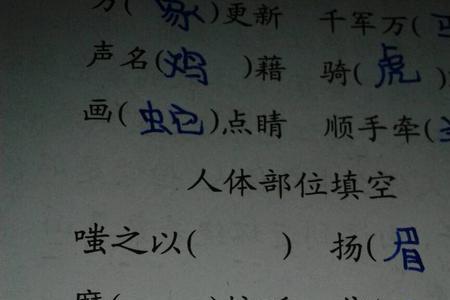 万(象)更新 千军万(马
声名(鸡 )藉 骑(虎)
画(蛇)点睛 顺手牵(
人体部位填空
嗤之以( ) 扬(眉